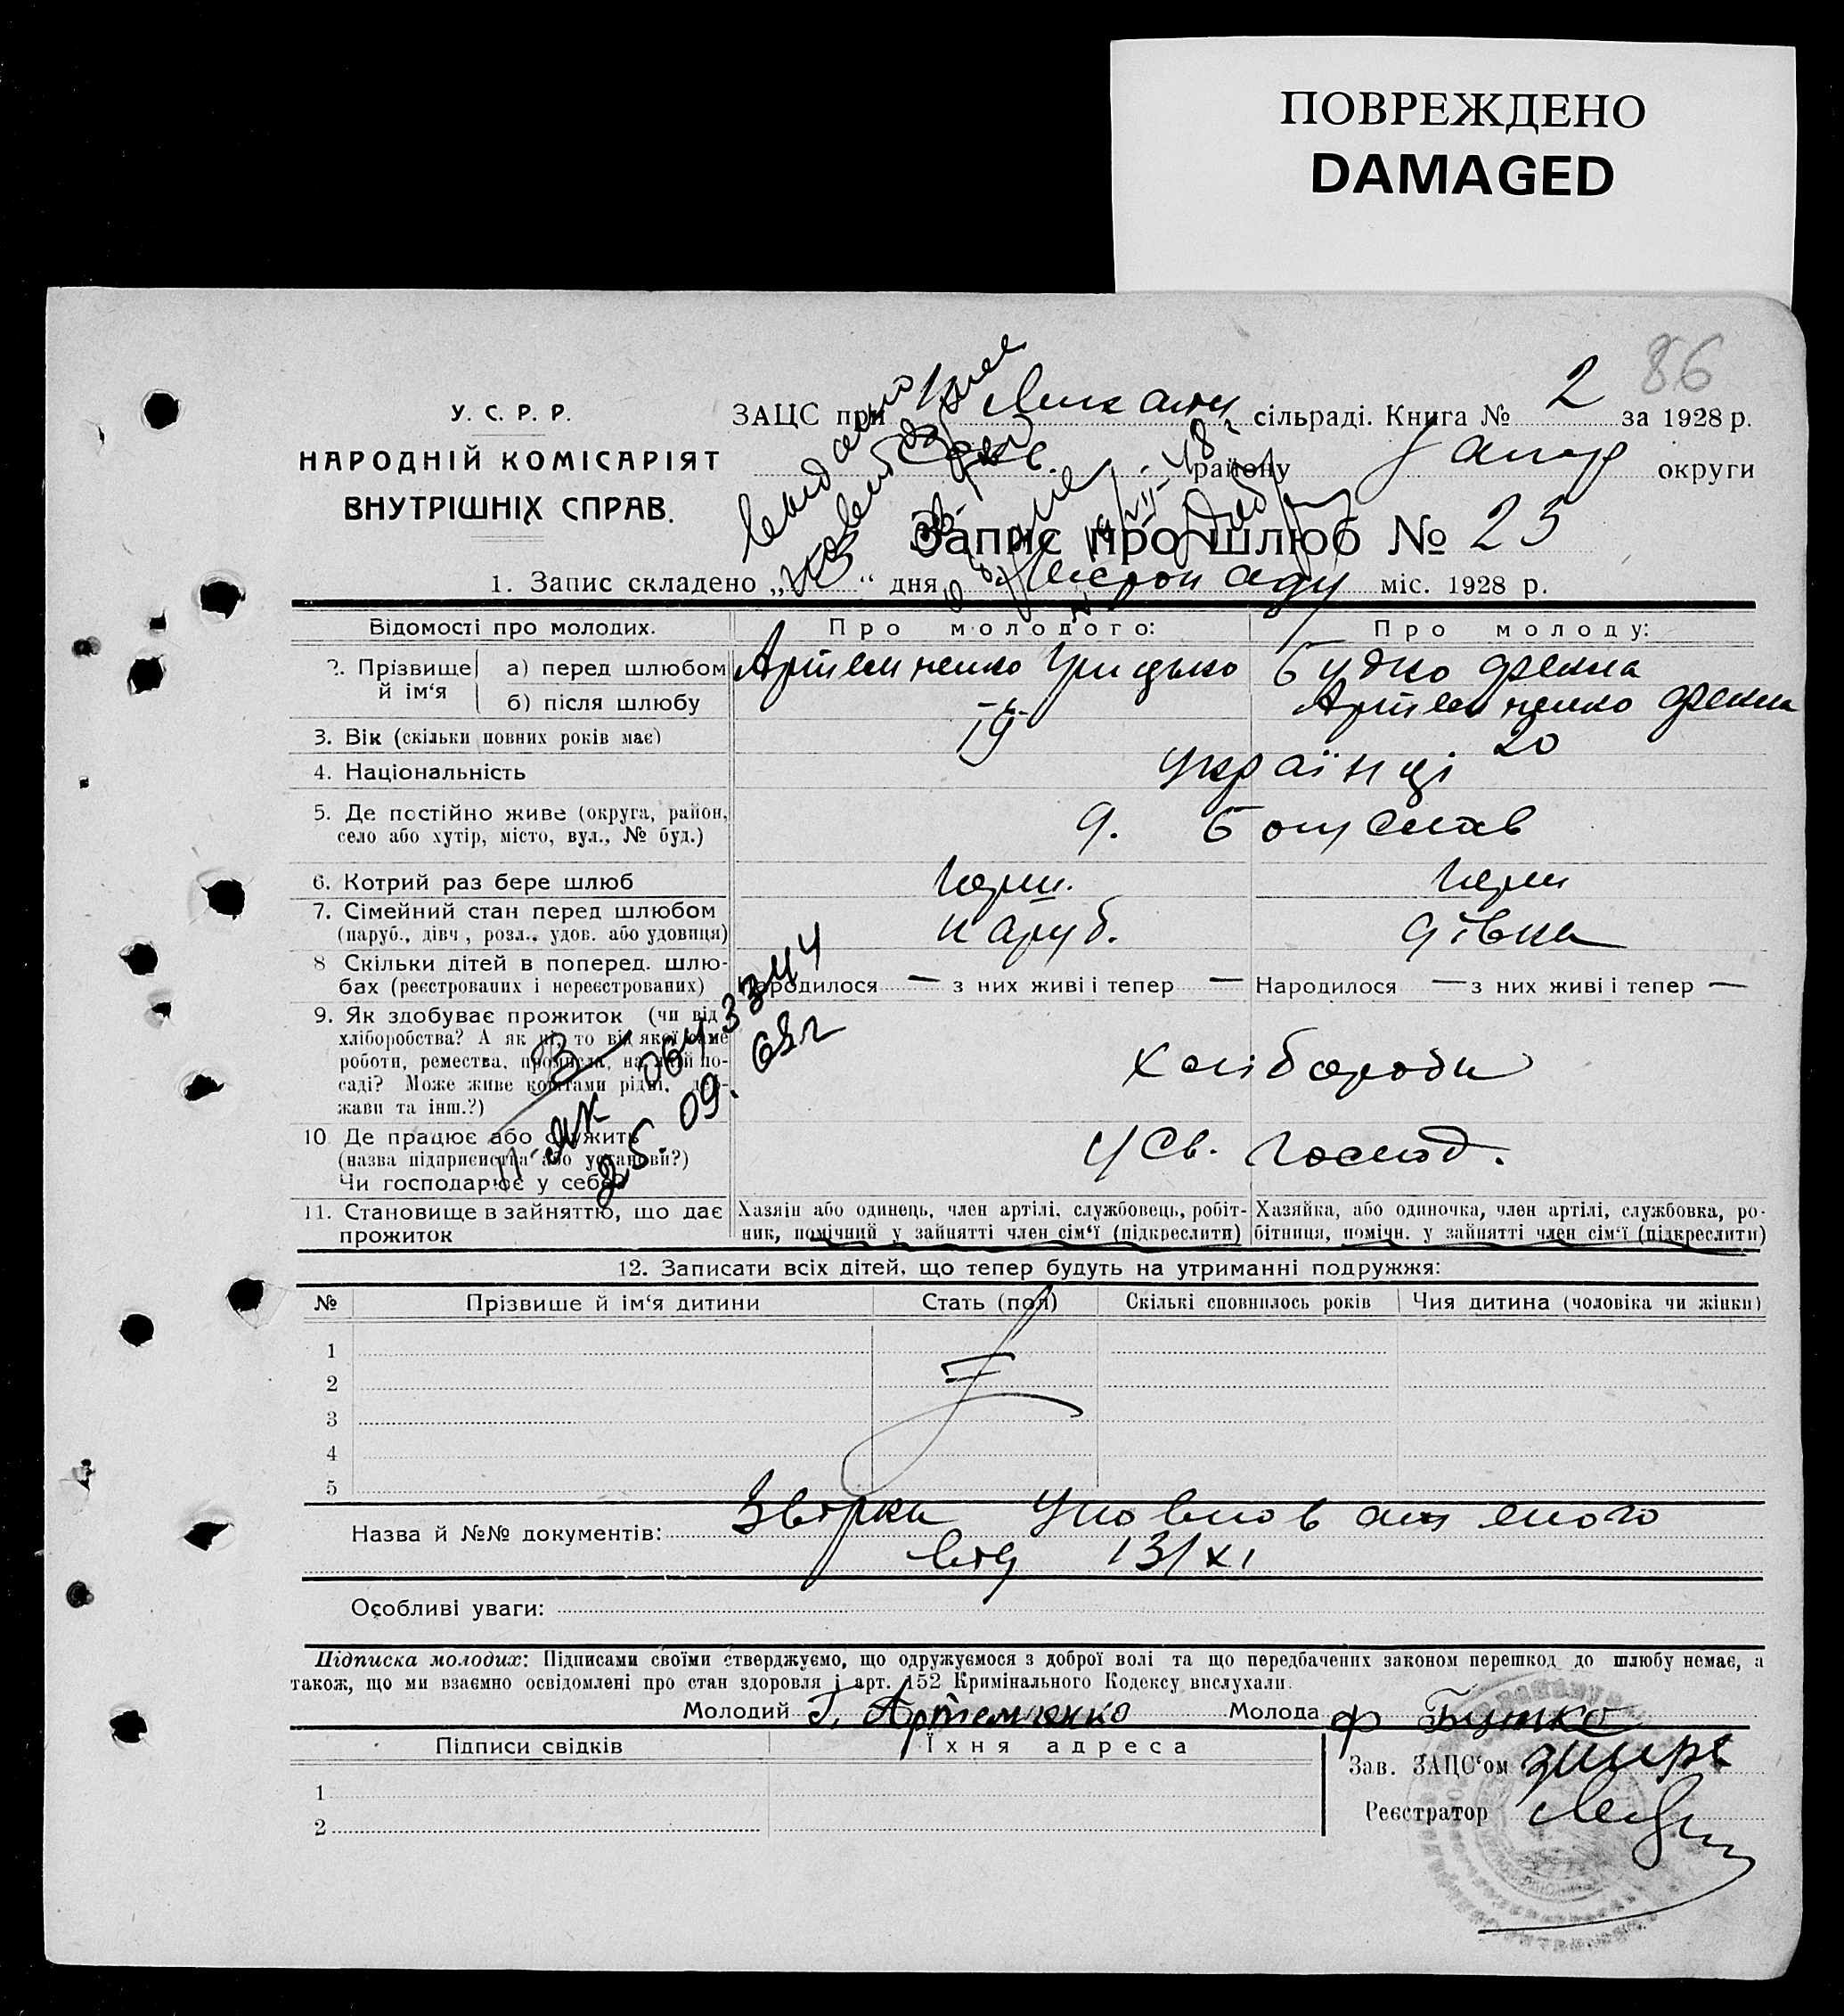 ПОВРЕЖДЕНО
DAMAGED
86
У. С. Р. Р.
НАРОДНІЙ КОМІСАРІЯТ
ВНУТРІШНІХ СПРАВ.
ЗАЦС при сільраді. Книга № 2 за 1928 р.
району округи
Запис про шлюб № 25
1. Запис складено „ “ дня міс. 1928 р.
Відомості про молодих.
Про молодого:
Про молоду:
2. Прізвище й ім‘я
а) перед шлюбом Артеменко Грицько Будко Фекла
б) після шлюбу Артеменко Фекла
3. Вік (скільки повних років має) 19 20
4. Національність Українці
5. Де постійно живе (округа, район,
село або хутір, місто, вул., № буд.)
6. Котрий раз бере шлюб Перш. Перш
7. Сімейний стан перед шлюбом
(паруб., дівч., розл., удов. або удовиця) паруб. дівка
8 Скільки дітей в поперед. шлю-
бах (реєстрованих і нереєстрованих) Народилося — з них живі і тепер — Народилося — з них живі і тепер —
9. Як здобуває прожиток (чи від
хліборобства? А як ні, то від якої саме
роботи, ремества, промисла, на якій по-
саді? Може живе коштами рідні, дер-
жави та інш.?)
Хлібороби
10 Де працює або служить
(назва підприємства або установи?)
Чи господарює у себе?
у св. господ.
064 3344
25. 09. 68г
11. Становище в зайняттю, що дає
прожиток
Хазяін або одинець, член артілі, службовець, робіт-
ник, помічний у зайнятті член сім‘ї (підкреслити)
Хазяйка, або одиночка, член артілі, службовка, ро-
бітниця, помічн. у зайнятті член сім‘ї (підкреслити)
12. Записати всіх дітей, що тепер будуть на утриманні подружжя:
№ Прізвище й ім‘я дитини Стать (пол) Скількі сповнилось років Чия дитина (чоловіка чи жінки)
1
2
3
4
5
Назва й №№ документів:
від 13/XI
Особливі уваги:
Підписка молодих: Підписами своїми стверджуємо, що одружуємося з доброї волі та що передбачених законом перешкод до шлюбу немає, а
також, що ми взаємно освідомлені про стан здоровля і арт. 152 Кримінального Кодексу вислухали.
Молодий Г. Артеменко Молода Ф Бутко
Підписи свідків Їхня адреса
Зав. ЗАЦС‘ом
Реєстратор
1
2